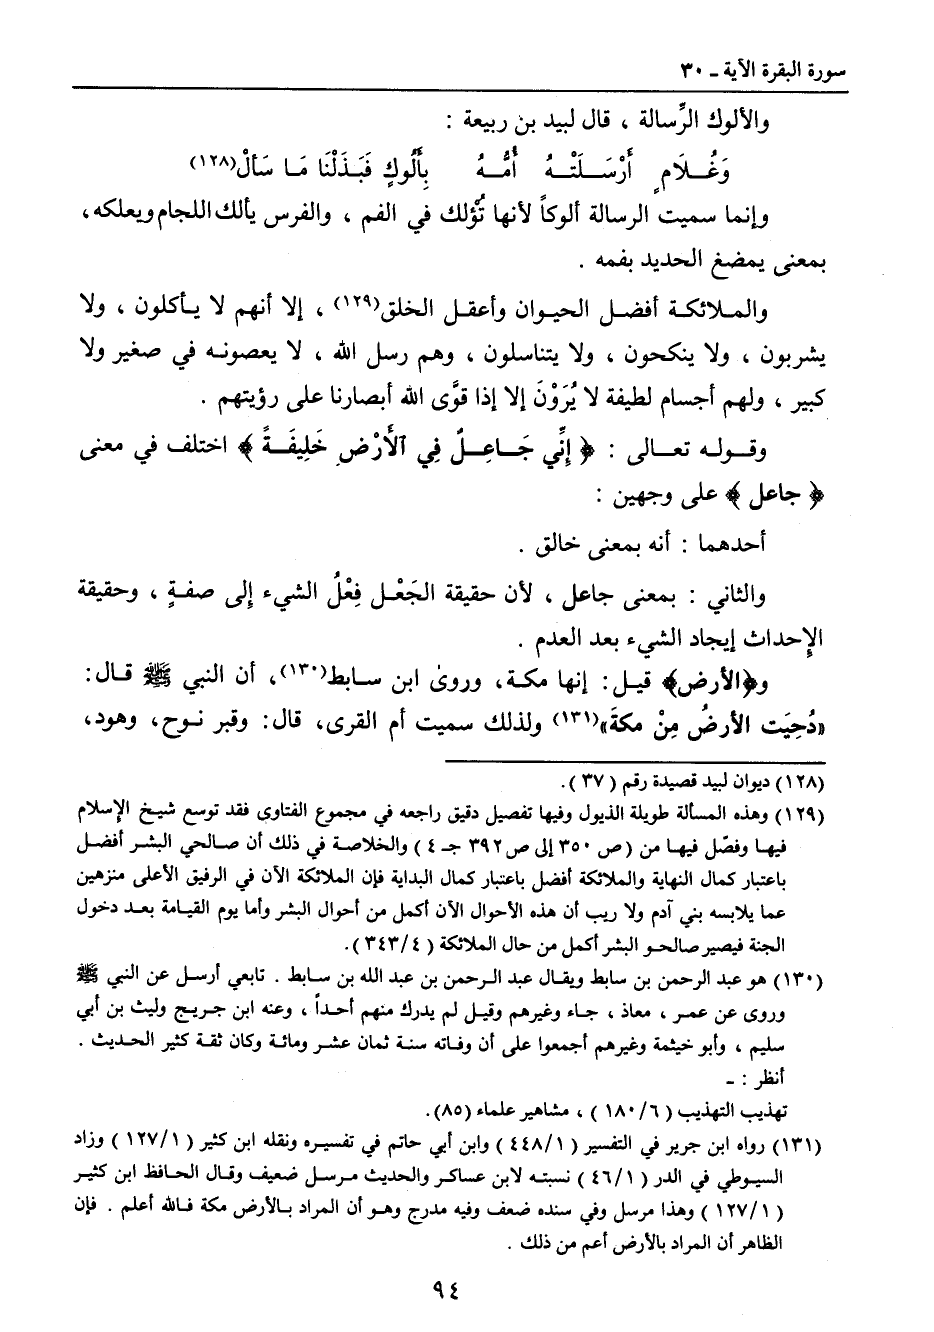 سورة البقرة الآية ـ ٣٠
والألوك الرِّسالة ، قال لبيد بن ربيعة :
وَغُـلَامٍ أَرْسَـلَتْـهُ أُمُّـهُ بِأَلُوكٍ فَبَذَلْنَا مَا سَألْ(١٢٨)
وإنما سميت الرسالة ألوكاً لأنها تُؤلك في الفم ، والفرس يألك اللجام ويعلكه،
بمعنى يمضغ الحديد بفمه .
والمـلائكـة أفضـل الحيـوان وأعقـل الخلق(١٢٩) ، إلا أنهم لا يـأكلون ، ولا
يشربون ، ولا ينكحون ، ولا يتناسلون ، وهم رسل الله ، لا يعصونـه في صغير ولا
كبير ، ولهم أجسام لطيفة لا يُرَوْنَ إلا إذا قوَّى الله أبصارنا على رؤيتهم .
وقـولـه تعـالى : ﴿ إِنِّي جَـاعِـلٌ فِي ٱلأَرْضِ خَلِيفَـةً ﴾ اختلف في معنى
﴿ جاعل ﴾ على وجهين :
أحدهما : أنه بمعنى خالق .
والثاني : بمعنى جاعل ، لأن حقيقة الجَعْل فِعْلُ الشيء إلى صفةٍ ، وحقيقة
الإحداث إيجاد الشيء بعد العدم .
و﴿الأرض﴾ قيـل: إنها مكـة، وروىٰ ابن سـابط(١٣٠)، أن النبي ﷺ قـال:
«دُحِيَت الأرضُ مِنْ مكةَ»(١٣١) ولذلك سميت أم القرى، قال: وقبر نـوح، وهود،
(١٢٨) ديوان لبيد قصيدة رقم ( ٣٧ ).
(١٢٩) وهذه المسألة طويلة الذيول وفيها تفصيل دقيق راجعه في مجموع الفتاوى فقد توسع شيخ الإسلام
فيهـا وفصّل فيهـا من ( ص ٣٥٠ إلى ص ٣٩٢ جـ ٤ ) والخلاصة في ذلك أن صـالحي البشر أفضـل
باعتبار كمال النهاية والملائكة أفضل باعتبار كمال البداية فإن الملائكة الآن في الرفيق الأعلى منزهين
عما يلابسه بني آدم ولا ريب أن هذه الأحوال الآن أكمل من أحوال البشر وأما يوم القيامة بعـد دخول
الجنة فيصير صالحـو البشر أكمل من حال الملائكة ( ٣٤٣/٤ ).
(١٣٠) هو عبد الرحمن بن سابط ويقـال عبد الـرحمن بن عبد الله بن سـابط . تابعي أرسـل عن النبي ﷺ
وروى عن عمـر ، معاذ ، جـاء وغيرهم وقيـل لم يدرك منهم أحـداً ، وعنه ابن جريـج وليث بن أبي
سليم ، وأبو خيثمة وغيرهم أجمعوا على أن وفـاته سنـة ثمان عشـر ومائـة وكان ثقـة كثير الحديث .
أنظر : ـ
تهذيب التهذيب ( ١٨٠/٦ ) ، مشاهير علماء (٨٥).
(١٣١) رواه ابن جرير في التفسير ( ٤٤٨/١ ) وابن أبي حاتم في تفسيره ونقله ابن كثير ( ١٢٧/١ ) وزاد
السيـوطي في الدر ( ٤٦/١ ) نسبتـه لابن عساكـر والحديث مـرسل ضعيف وقـال الحافظ ابن كثيـر
( ١٢٧/١ ) وهذا مرسل وفي سنده ضعف وفيه مدرج وهـو أن المراد بـالأرض مكة فـالله أعلم . فإن
الظاهر أن المراد بالأرض أعم من ذلك .
٩٤